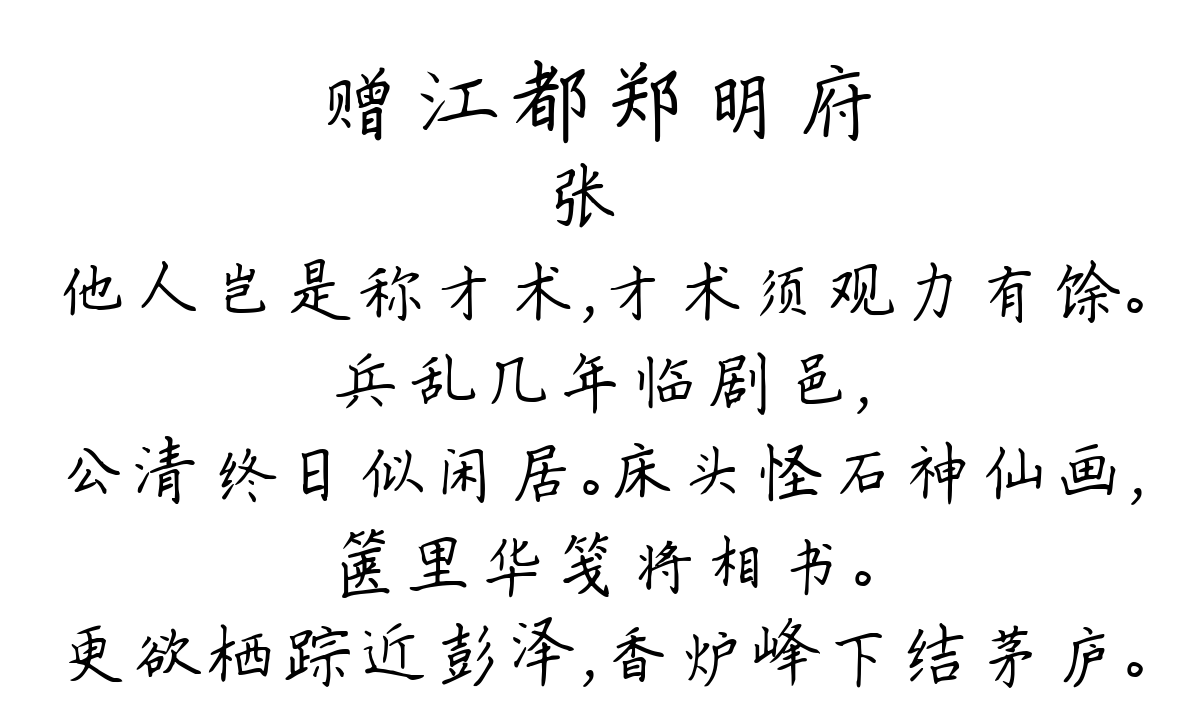 赠江都郑明府
张
他人岂是称才术,才术须观力有馀。
兵乱几年临剧邑,
公清终日似闲居。床头怪石神仙画,
箧里华笺将相书。
更欲栖踪近彭泽,香炉峰下结茅庐。